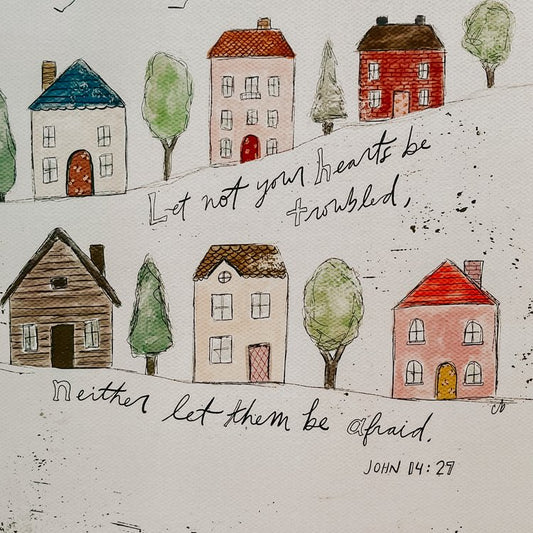 Let not your hearts be
troubled,
neither let them be afraid.
JOHN 14:27